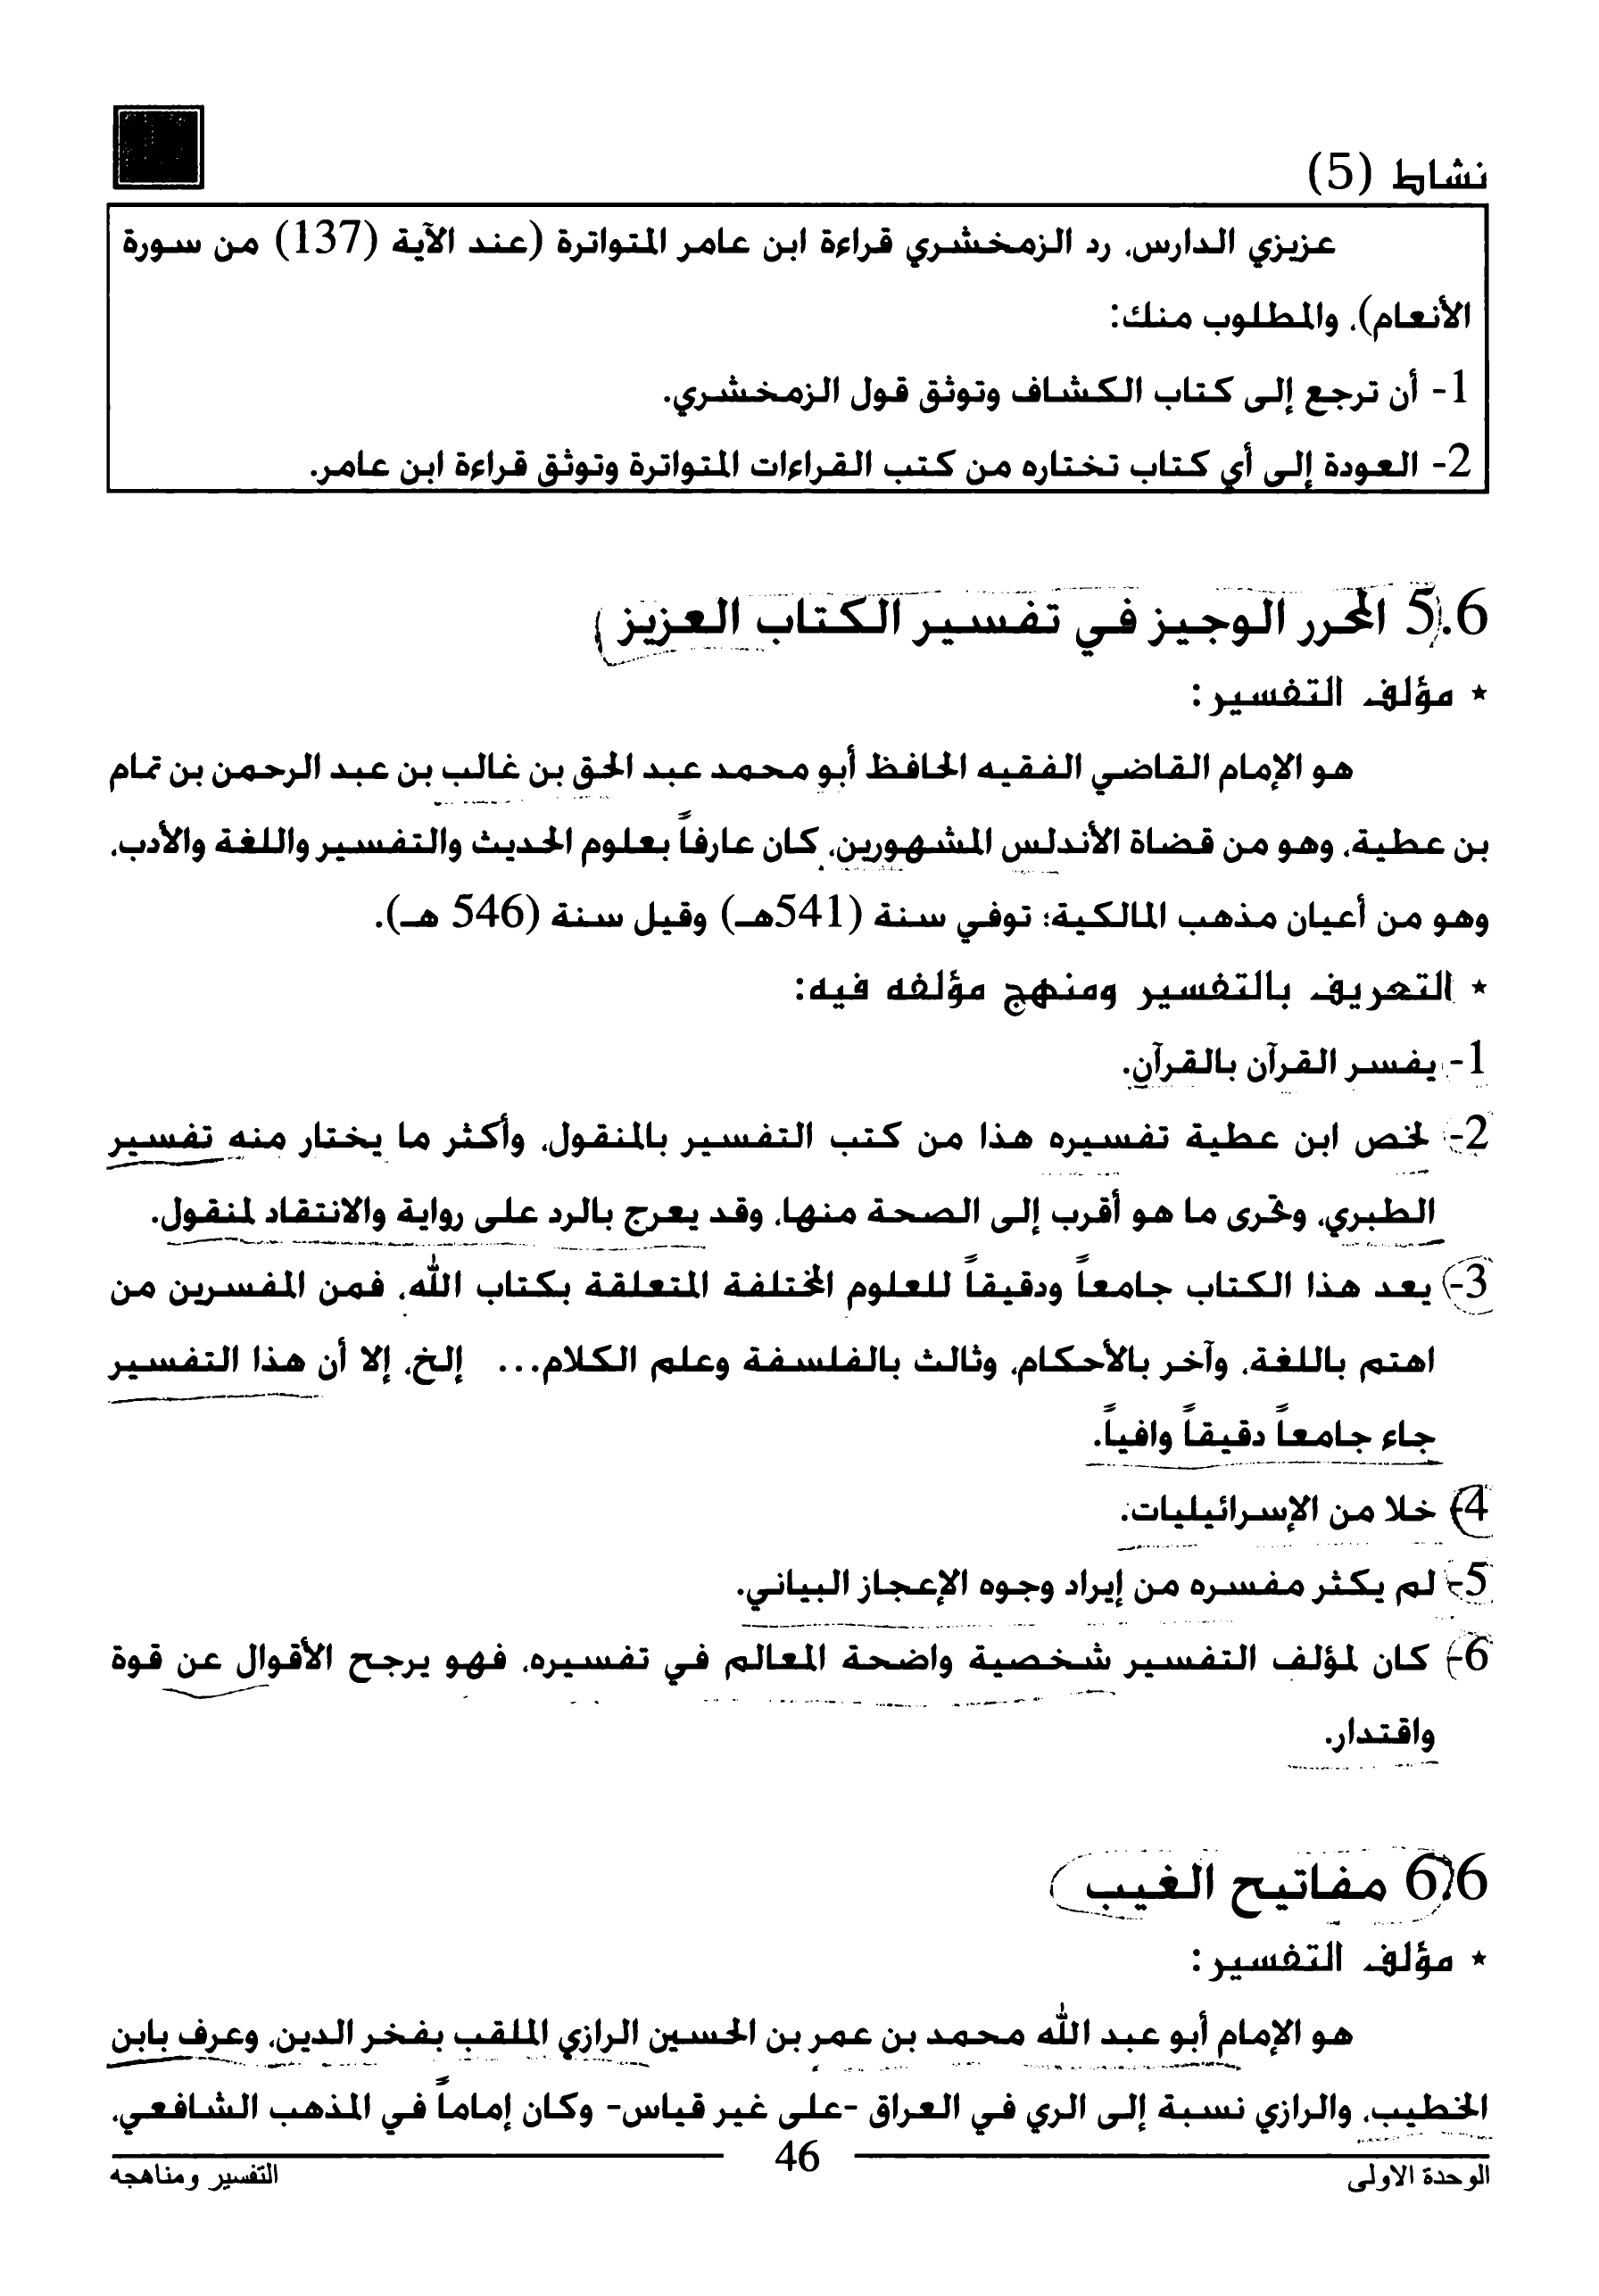 نشاط (5)
عزيزي الدارس، رد الزمخشري قراءة ابن عامر المتواترة (عند الآية (137) من سورة
الأنعام)، والمطلوب منك:
1- أن ترجع إلى كتاب الكشاف وتوثق قول الزمخشري.
2- العودة إلى أي كتاب تختاره من كتب القراءات المتواترة وتوثق قراءة ابن عامر.
5.6 المحرر الوجيز في تفسير الكتاب العزيز
* مؤلف التفسير:
هو الإمام القاضي الفقيه الحافظ أبو محمد عبد الحق بن غالب بن عبد الرحمن بن تمام
بن عطية، وهو من قضاة الأندلس المشهورين، كان عارفاً بعلوم الحديث والتفسير واللغة والأدب،
وهو من أعيان مذهب المالكية؛ توفي سنة (541هـ) وقيل سنة (546 هـ).
* التعريف بالتفسير ومنهج مؤلفه فيه:
1- يفسر القرآن بالقرآن.
2- لخص ابن عطية تفسيره هذا من كتب التفسير بالمنقول، وأكثر ما يختار منه تفسير
الطبري، وتحرى ما هو أقرب إلى الصحة منها، وقد يعرج بالرد على رواية والانتقاد لمنقول.
3- يعد هذا الكتاب جامعاً ودقيقاً للعلوم المختلفة المتعلقة بكتاب الله، فمن المفسرين من
اهتم باللغة، وآخر بالأحكام، وثالث بالفلسفة وعلم الكلام... إلخ، إلا أن هذا التفسير
جاء جامعاً دقيقاً وافياً.
4- خلا من الإسرائيليات.
5- لم يكثر مفسره من إيراد وجوه الإعجاز البياني.
6- كان لمؤلف التفسير شخصية واضحة المعالم في تفسيره، فهو يرجح الأقوال عن قوة
واقتدار.
6.6 مفاتيح الغيب
* مؤلف التفسير:
هو الإمام أبو عبد الله محمد بن عمر بن الحسين الرازي الملقب بفخر الدين، وعرف بابن
الخطيب، والرازي نسبة إلى الري في العراق -على غير قياس- وكان إماماً في المذهب الشافعي،
46
الوحدة الاولى
التفسير ومناهجه